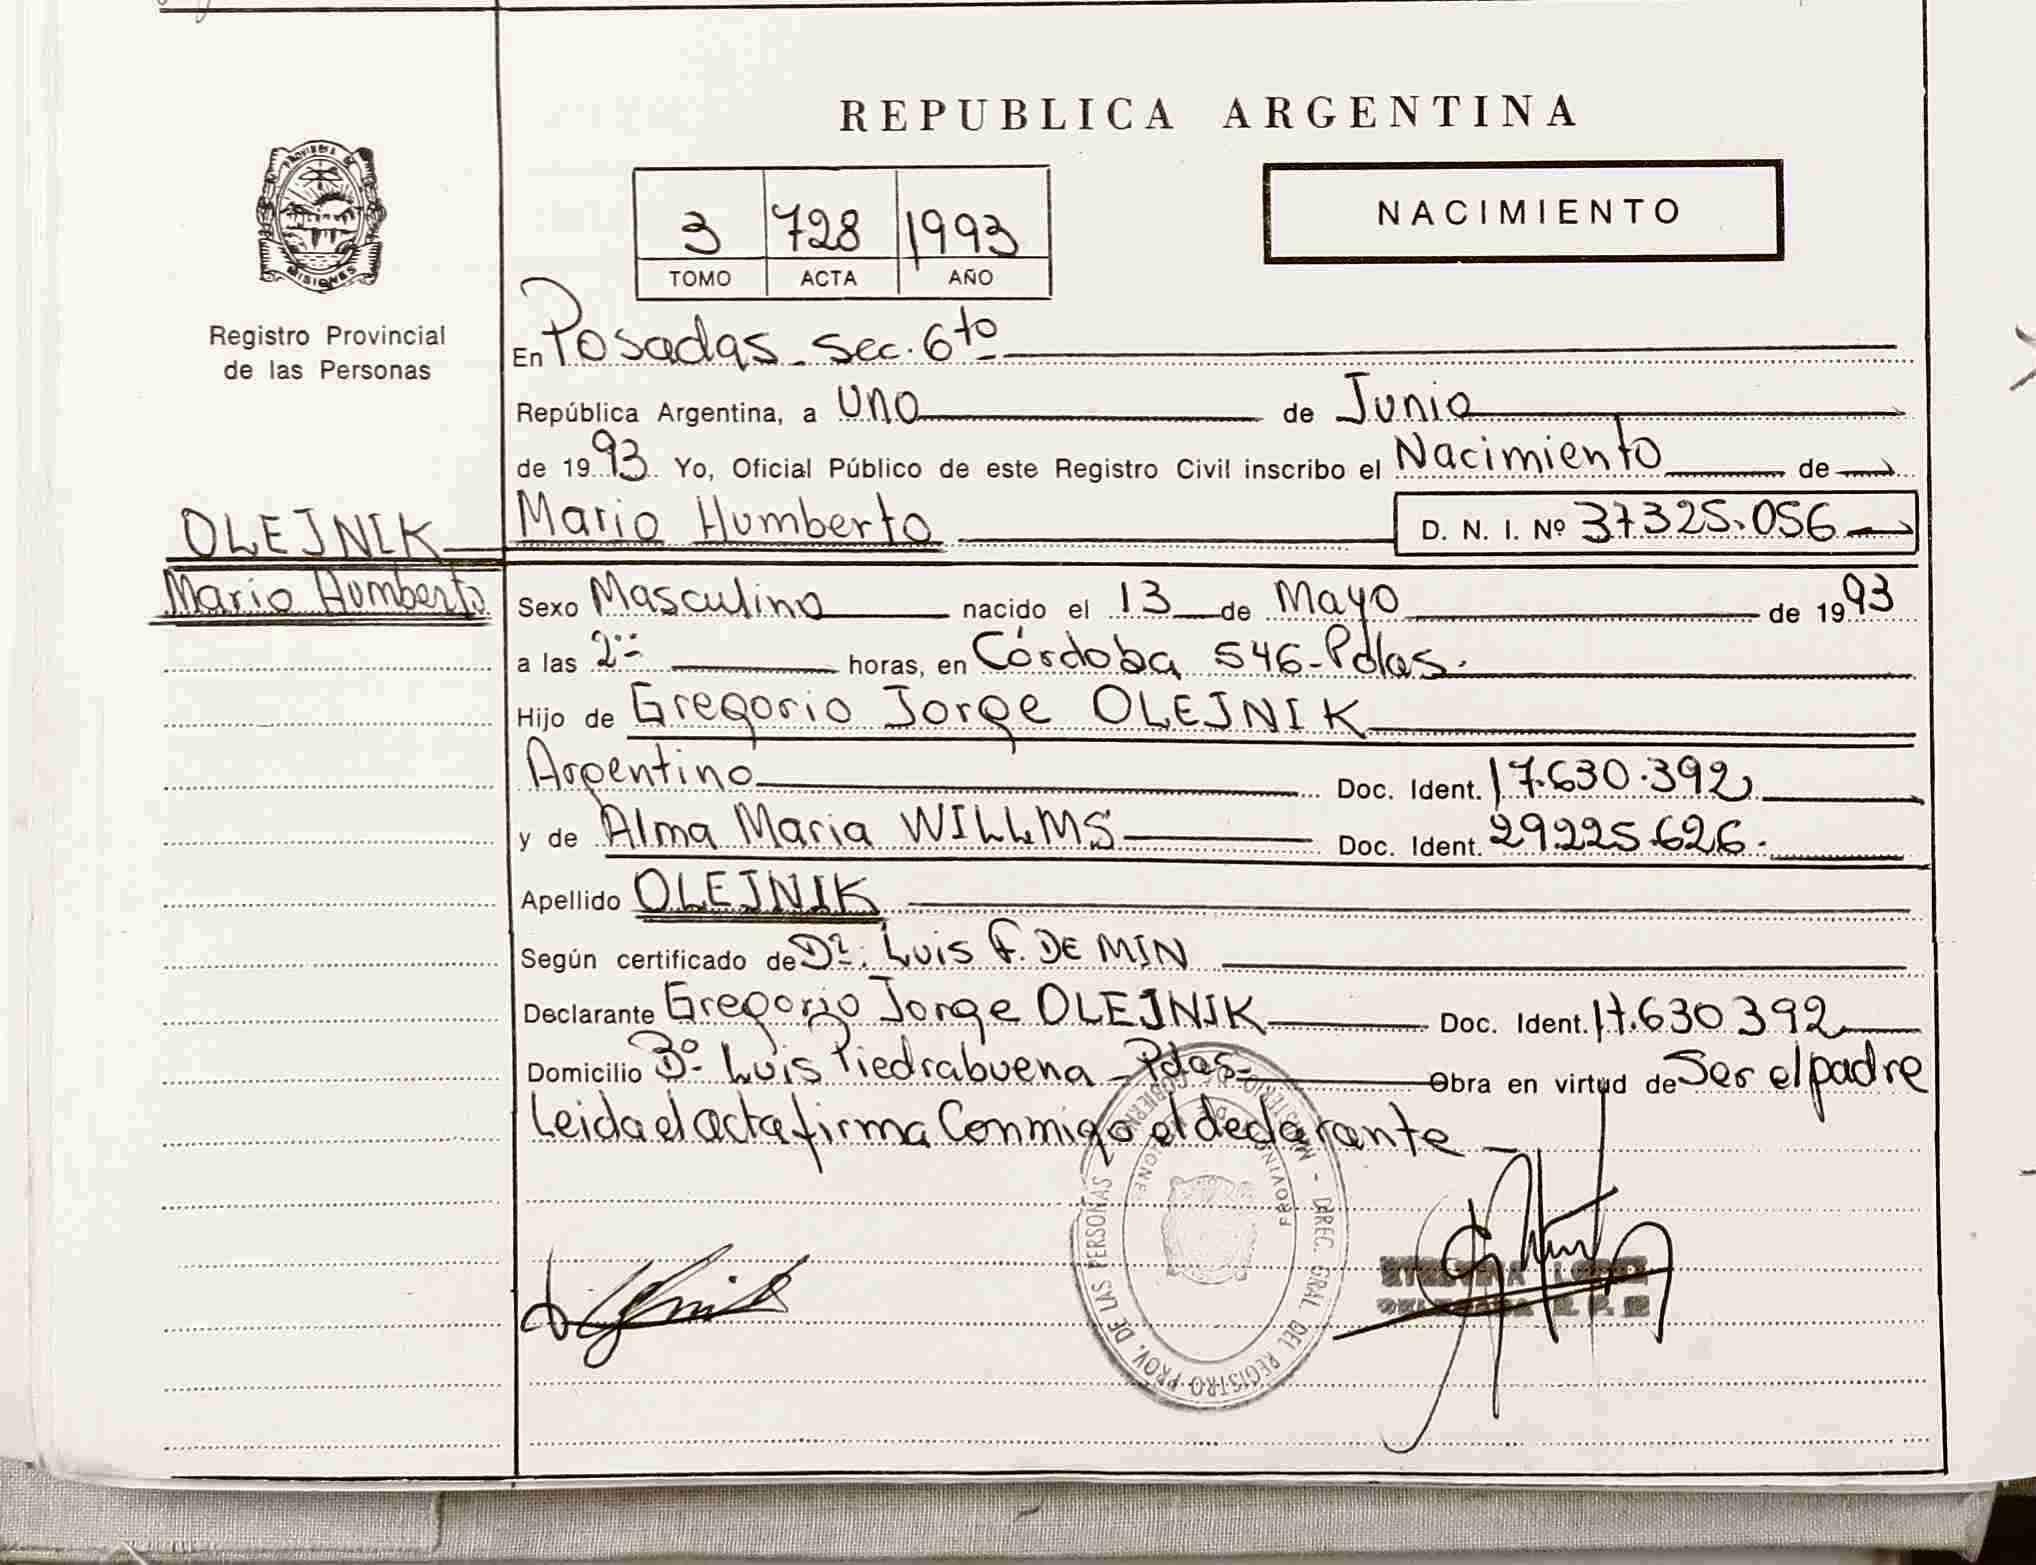 REPUBLICA ARGENTINA
NACIMIENTO
3 728 1993
TOMO ACTA AÑO
PROVINCIA DE
MISIONES
Registro Provincial
de las Personas
OLEJNIK
Mario Humberto
En Posadas - Sec. 6to
República Argentina, a uno de Junio
de 1993 Yo, Oficial Público de este Registro Civil inscribo el Nacimiento de
Mario Humberto D. N. I. Nº 37.325.056
Sexo Masculino nacido el 13 de Mayo de 1993
a las 2 horas, en Córdoba 546 - Pdas.
Hijo de Gregorio Jorge OLEJNIK
Argentino Doc. Ident. 17.630.392
y de Alma Maria WILLMS Doc. Ident. 29.225.626.
Apellido OLEJNIK
Según certificado de Dr. Luis F. DE MIN
Declarante Gregorio Jorge OLEJNIK Doc. Ident. 17.630.392
Domicilio Bº Luis Piedrabuena - Pdas - Obra en virtud de Ser el padre
Leida el acta firma Conmigo el declarante -
MINISTERIO DE GOBIERNO - DIREC. GRAL. DEL REGISTRO PROV. DE LAS PERSONAS
PROVINCIA DE MISIONES
LOPEZ